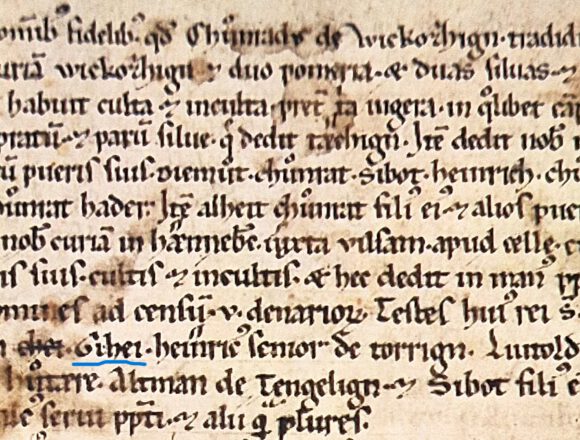 omib' fidelib' qd Chuͦnrade de Wickorhign tradidi
uriā wickorhign ⁊ duo pomeria · & duas siluas · ⁊
habuit culta ⁊ inculta p̄t ta iugera · in q̄libet
pratū · ⁊ paruī silue · q̄ dedit · Itē dedit nob
pueris suis · chuͦnrat · Sibot · heinrich · ch
hader · Itē alheit chuͦnrat fili ei' ⁊ alios pue
nob curiam in · iuxta villam · apud celle ·
is suis · cultis ⁊ incultis · & hec dedit in man'
omnes ad censū · v · denarior · Testes hui' rei s̄
heinric' senior de torrign · Luitold
Altman de Tengelign · ⁊ Sibot fili
serui ppti · ⁊ alii q̄ plures ·